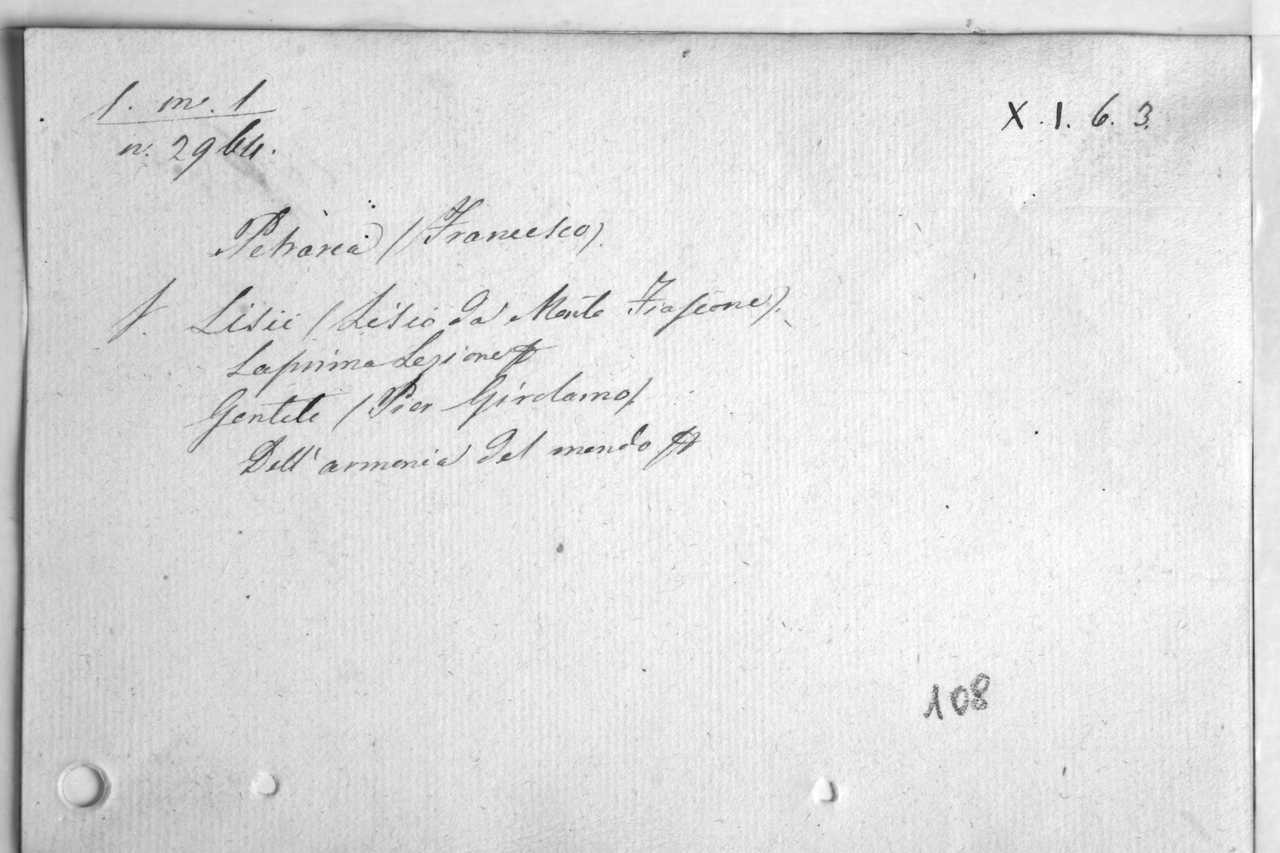 1. m. 1
X. 1. 6. 3.
n. 2964.
Petrarca (Francesco)
V. Lisii (Lisio da Monte Fiascone).
La prima Lezione
Gentile (Pier Girolamo)
Dell'armonia del mondo
108